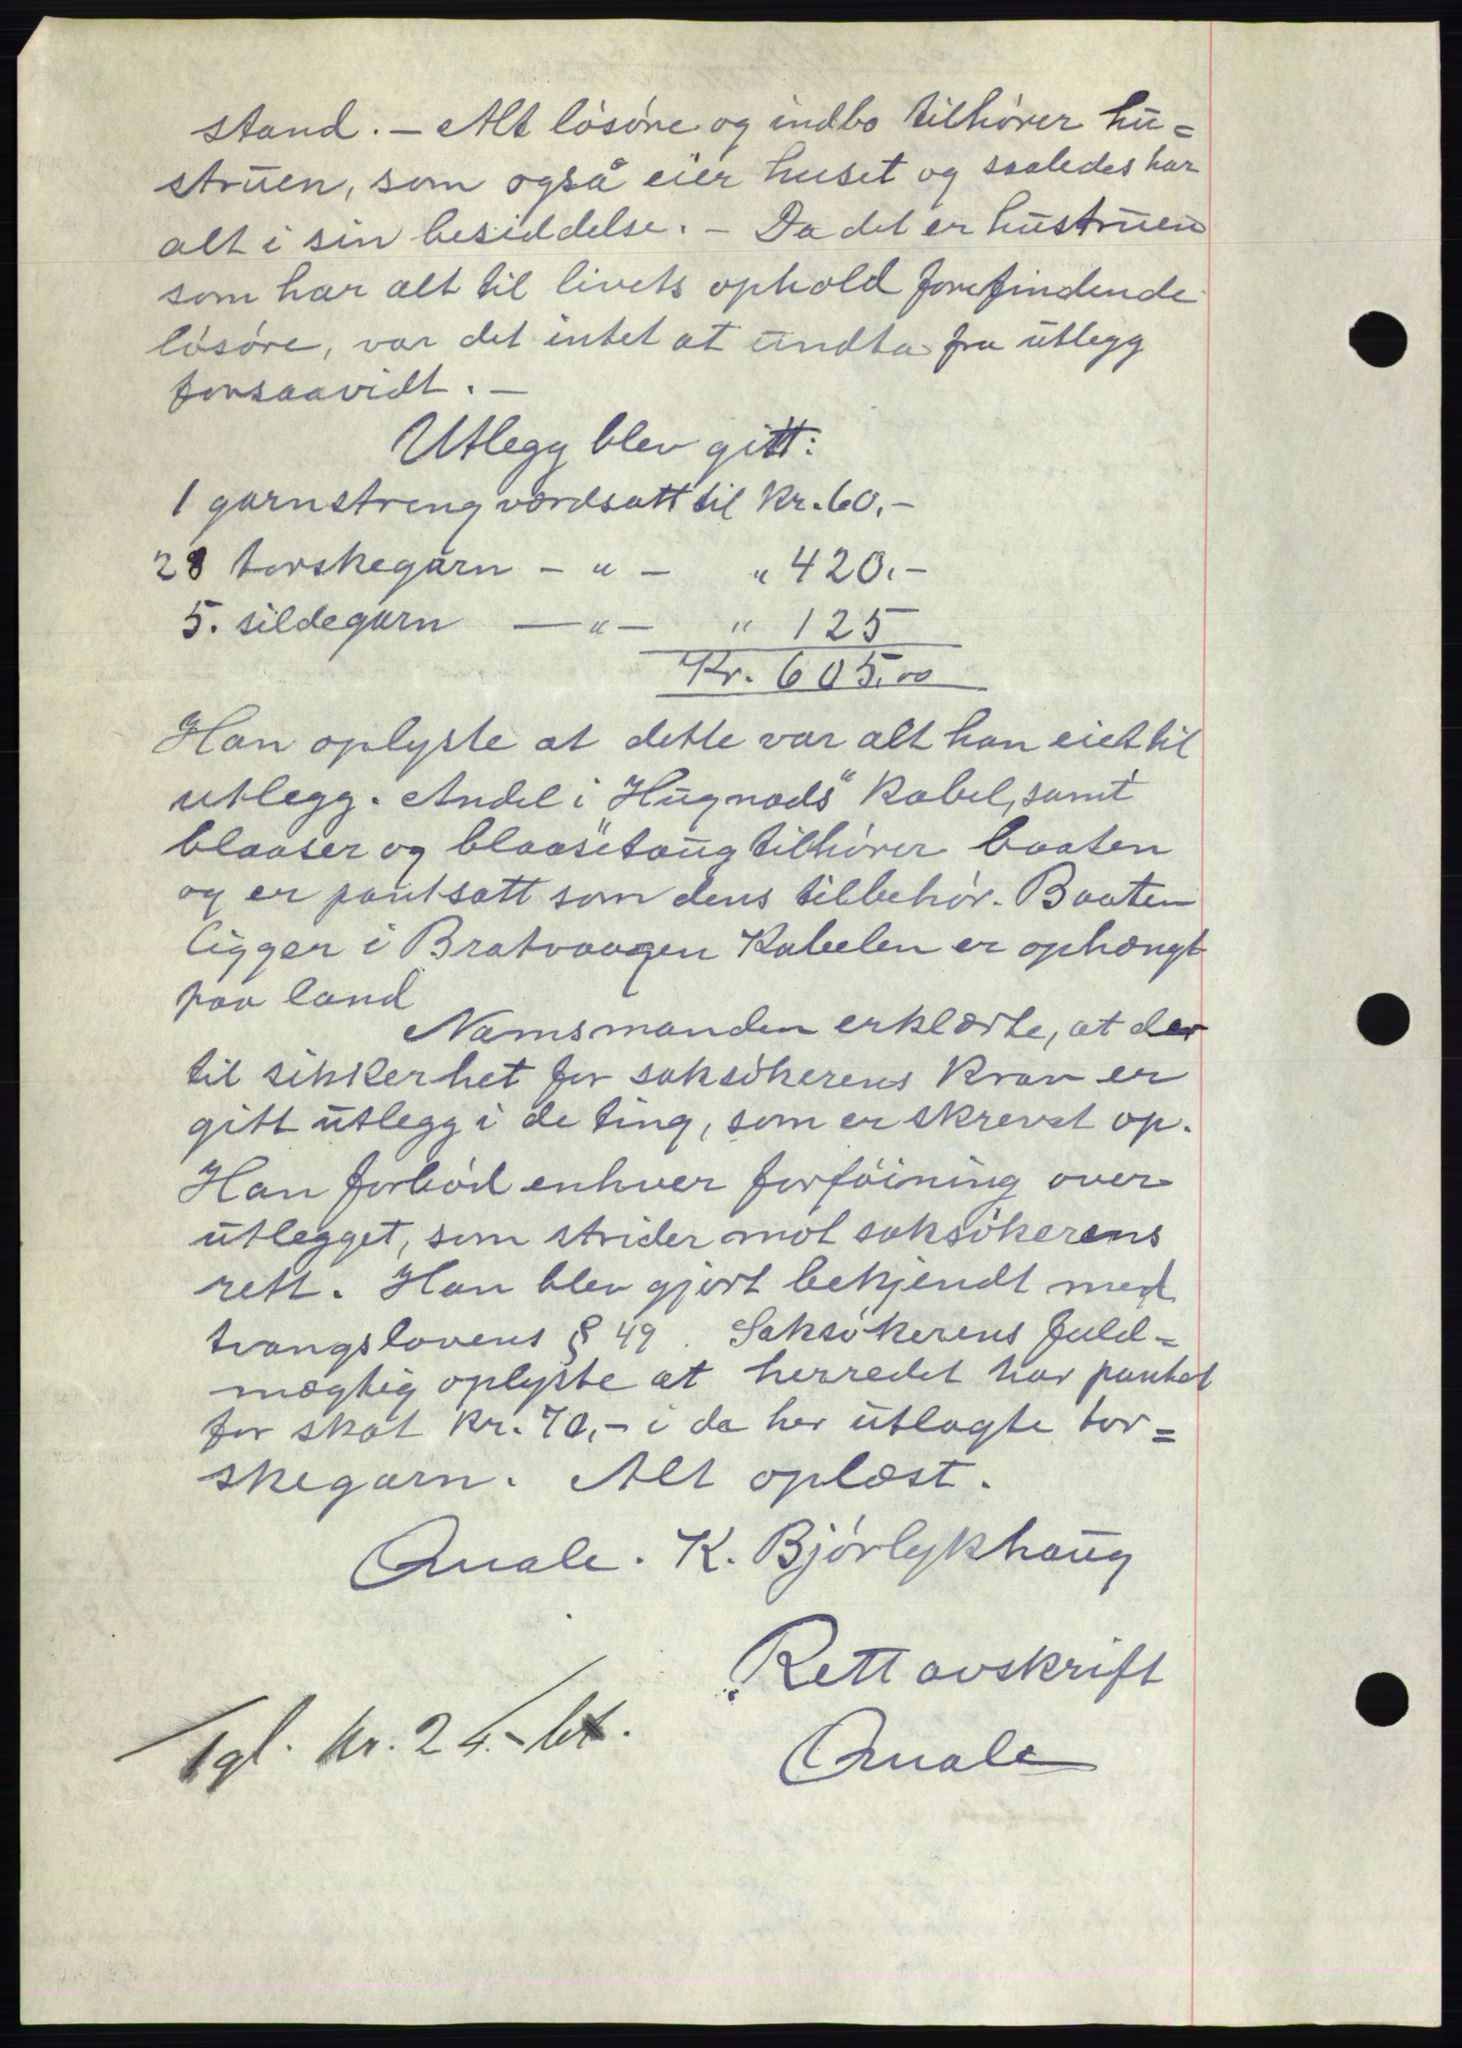 stand. – Alt lösöre og indbo tilhörer hu=
struen, som også eier huset og saaledes har
alt i sin besiddelse. – Da det er hustruen
som har alt til livets ophold forefindende
lösöre, var det intet at undta fra utlegg
forsaavidt. –
Utlegg blev gitt:
1 garnstreng værdsatt til Kr. 60.–
28 torskegarn – " – " 420.–
5. sildegarn – " – " 125
Kr. 605.00
Han oplyste at dette var alt han eiet til
utlegg. Andel i "Hugnads" kabel, samt
blaaser og blaasetaug tilhörer baaten
og er pantsatt som dens tilbehör. Baaten
ligger i Bratvaagen Kabelen er ophængt
paa land
Namsmanden erklærte, at der
til sikkerhet for saksökerens krav er
gitt utlegg i de ting, som er skrevet op.
Han forböd enhver forföining over
utlegget, som strider mot saksökerens
rett. Han blev gjort bekjendt med
tvangslovens § 49. Saksökerens fuld=
mægtig oplyste at herredet har pantet
for skat kr. 70,– i de her utlagte tor=
skegarn. Alt oplæst.
Quale. K. Bjórlykhaug
Rett avskrift
Quale
Tgl. kr. 24.– bt.